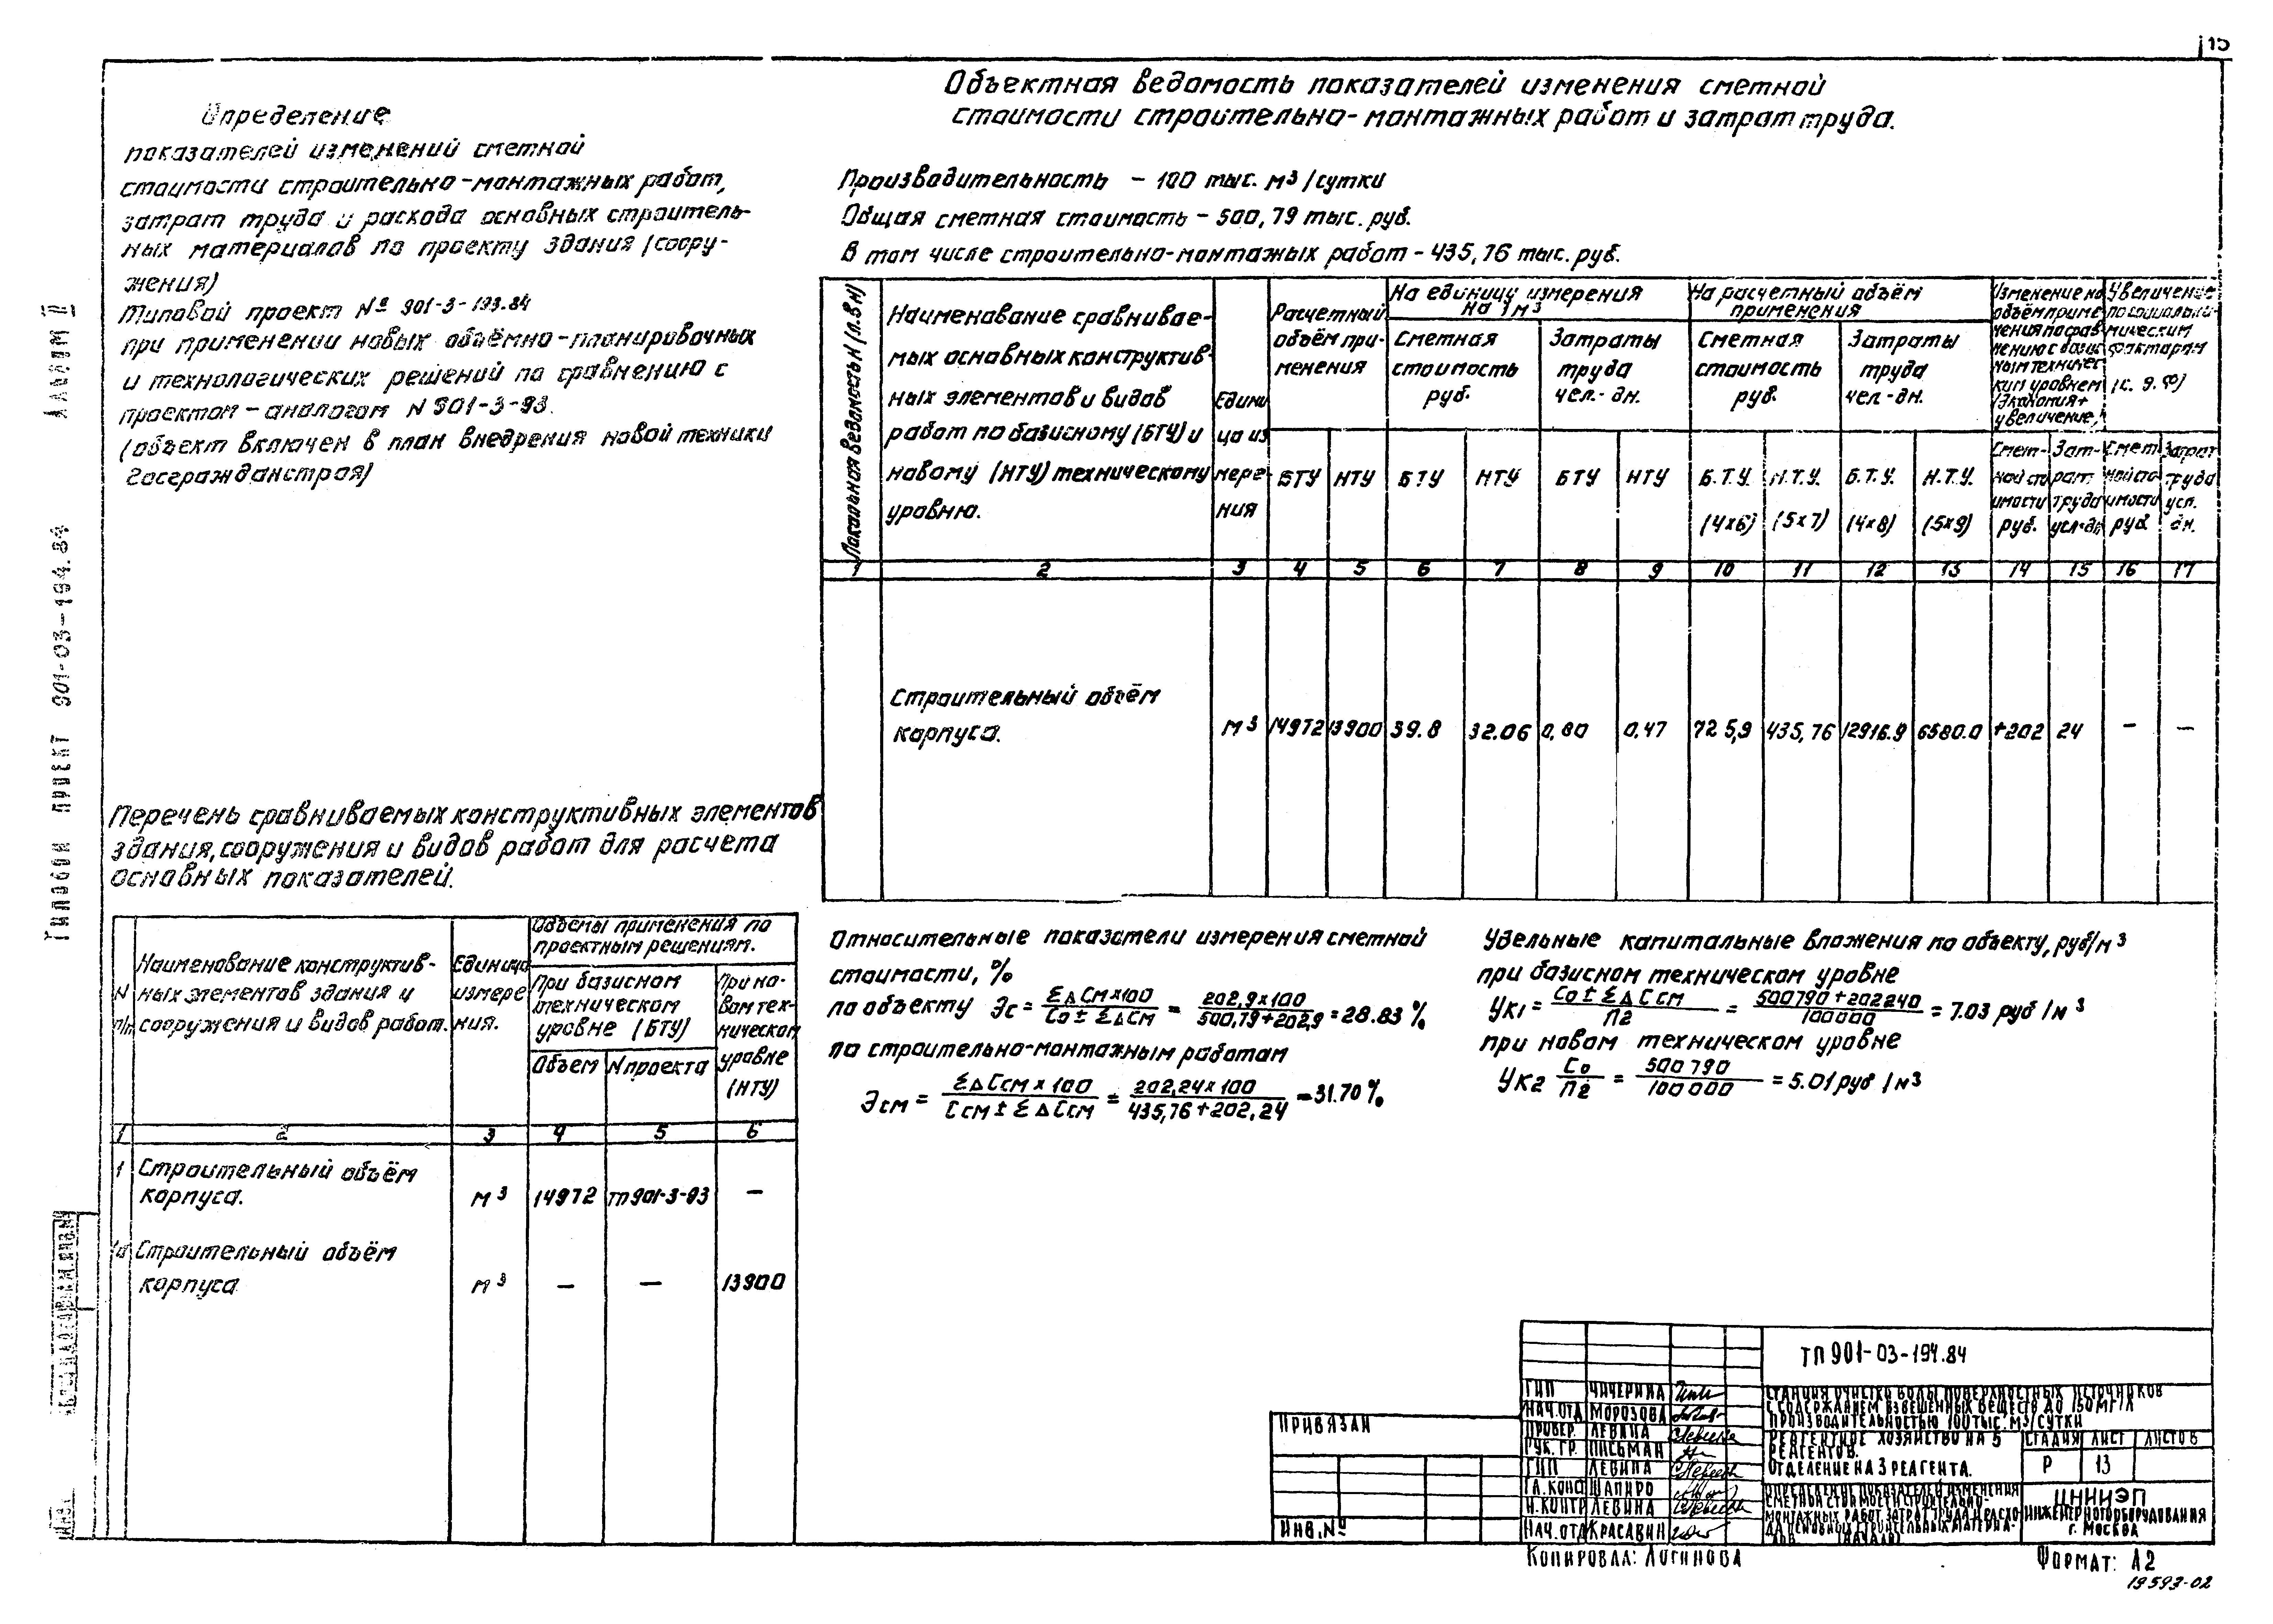 15
Определение
показателей изменений сметной
стоимости строительно-монтажных работ,
затрат труда и расхода основных строитель-
ных материалов по проекту здания (соору-
жения)
Типовой проект № 901-3-193.84
при применении новых объёмно-планировочных
и технологических решений по сравнению с
проектом-аналогом N 901-3-93.
(объект включен в план внедрения новой техники
Госгражданстроя)
Объектная ведомость показателей изменения сметной
стоимости строительно-монтажных работ и затрат труда.
Производительность - 100 тыс. м3/сутки
Общая сметная стоимость - 500,79 тыс. руб.
В том числе строительно-монтажных работ - 435,76 тыс. руб.
Локальная ведомость N (Л.В N)
Наименование сравнивае-
мых основных конструктив-
ных элементов и видов
работ по базисному (БТУ) и
новому (НТУ) техническому
уровню.
Едини
ца из
мере-
ния
Расчетный
объём при-
менения
На единицу измерения
на 1 м3
На расчетный объём
применения
Изменение на
объём приме
нения по срав
нению с базис
ным техничес
ким уровнем
(экономия+
увеличение,-)
Увеличение
по социальны-
мическим
факторам
(с. э. ф)
Сметная
стоимость
руб.
Затраты
труда
чел.-дн.
Сметная
стоимость
руб.
Затраты
труда
чел-дн.
БТУ НТУ БТУ НТУ БТУ НТУ Б.Т.У. Н.Т.У. Б.Т.У. Н.Т.У.
(4×6) (5×7) (4×8) (5×9)
Смет-
ной сто
имости
руб.
Зат-
рат.
труда
чел-дн
Смет
ной сто
имости
руб
Затрат
труда
чел.
дн.
1 2 3 4 5 6 7 8 9 10 11 12 13 14 15 16 17
Строительный объём
корпуса. м3 14972 13900 39.8 32.06 0,80 0,47 725,9 435,76 12916.9 6580.0 +202 24 - -
Перечень сравниваемых конструктивных элементов
здания, сооружения и видов работ для расчета
основных показателей.
N
п/п
Наименование конструктив-
ных элементов здания и
сооружения и видов работ.
Единица
измере
ния.
Объемы применения по
проектным решениям.
При базисном
техническом
уровне (БТУ)
При но-
вом тех-
ническом
уровне
(НТУ)
Объем N проекта
1 2 3 4 5 6
1 Строительный объём
корпуса. м3 14972 тп901-3-93 -
1а Строительный объём
корпуса м3 - - 13900
Относительные показатели измерения сметной
стоимости, %
по объекту Эс = ΣΔСм×100 / Со ± ΣΔСм = 202,9×100 / 500,79+202,9 = 28.83 %
по строительно-монтажным работам
Эсм = ΣΔСсм × 100 / Ссм ± ΣΔСсм = 202,24×100 / 435,76+202,24 = 31.70 %
Удельные капитальные вложения по объекту, руб/м3
при базисном техническом уровне
Ук1 = Со ± ΣΔСсм / П2 = 500790 + 202240 / 100000 = 7.03 руб/м3
при новом техническом уровне
Ук2 Со / П2 = 500790 / 100000 = 5.01 руб/м3
Альбом II
Типовой проект 901-03-194.84
Привязан
Инв. №
ГИП Чичерина
Нач.отд Морозова
Провер. Левина
Рук. гр. Письман
ГИП Левина
Гл. конс Шапиро
Н. контр Левина
Нач. отд Красавин
ТП 901-03-194.84
Станция очистки воды поверхностных источников
с содержанием взвешенных веществ до 150мг/л
производительностью 100 тыс. м3/сутки
Реагентное хозяйство на 5
реагентов.
Отделение на 3 реагента.
Стадия Лист Листов
Р 13
Определение показателей изменения
сметной стоимости строительно-
монтажных работ затрат труда и расхо-
да основных строительных материа-
лов (начало)
ЦНИИЭП
инженерного оборудования
г. Москва
Копировал: Логинова
Формат: А2
19593-02